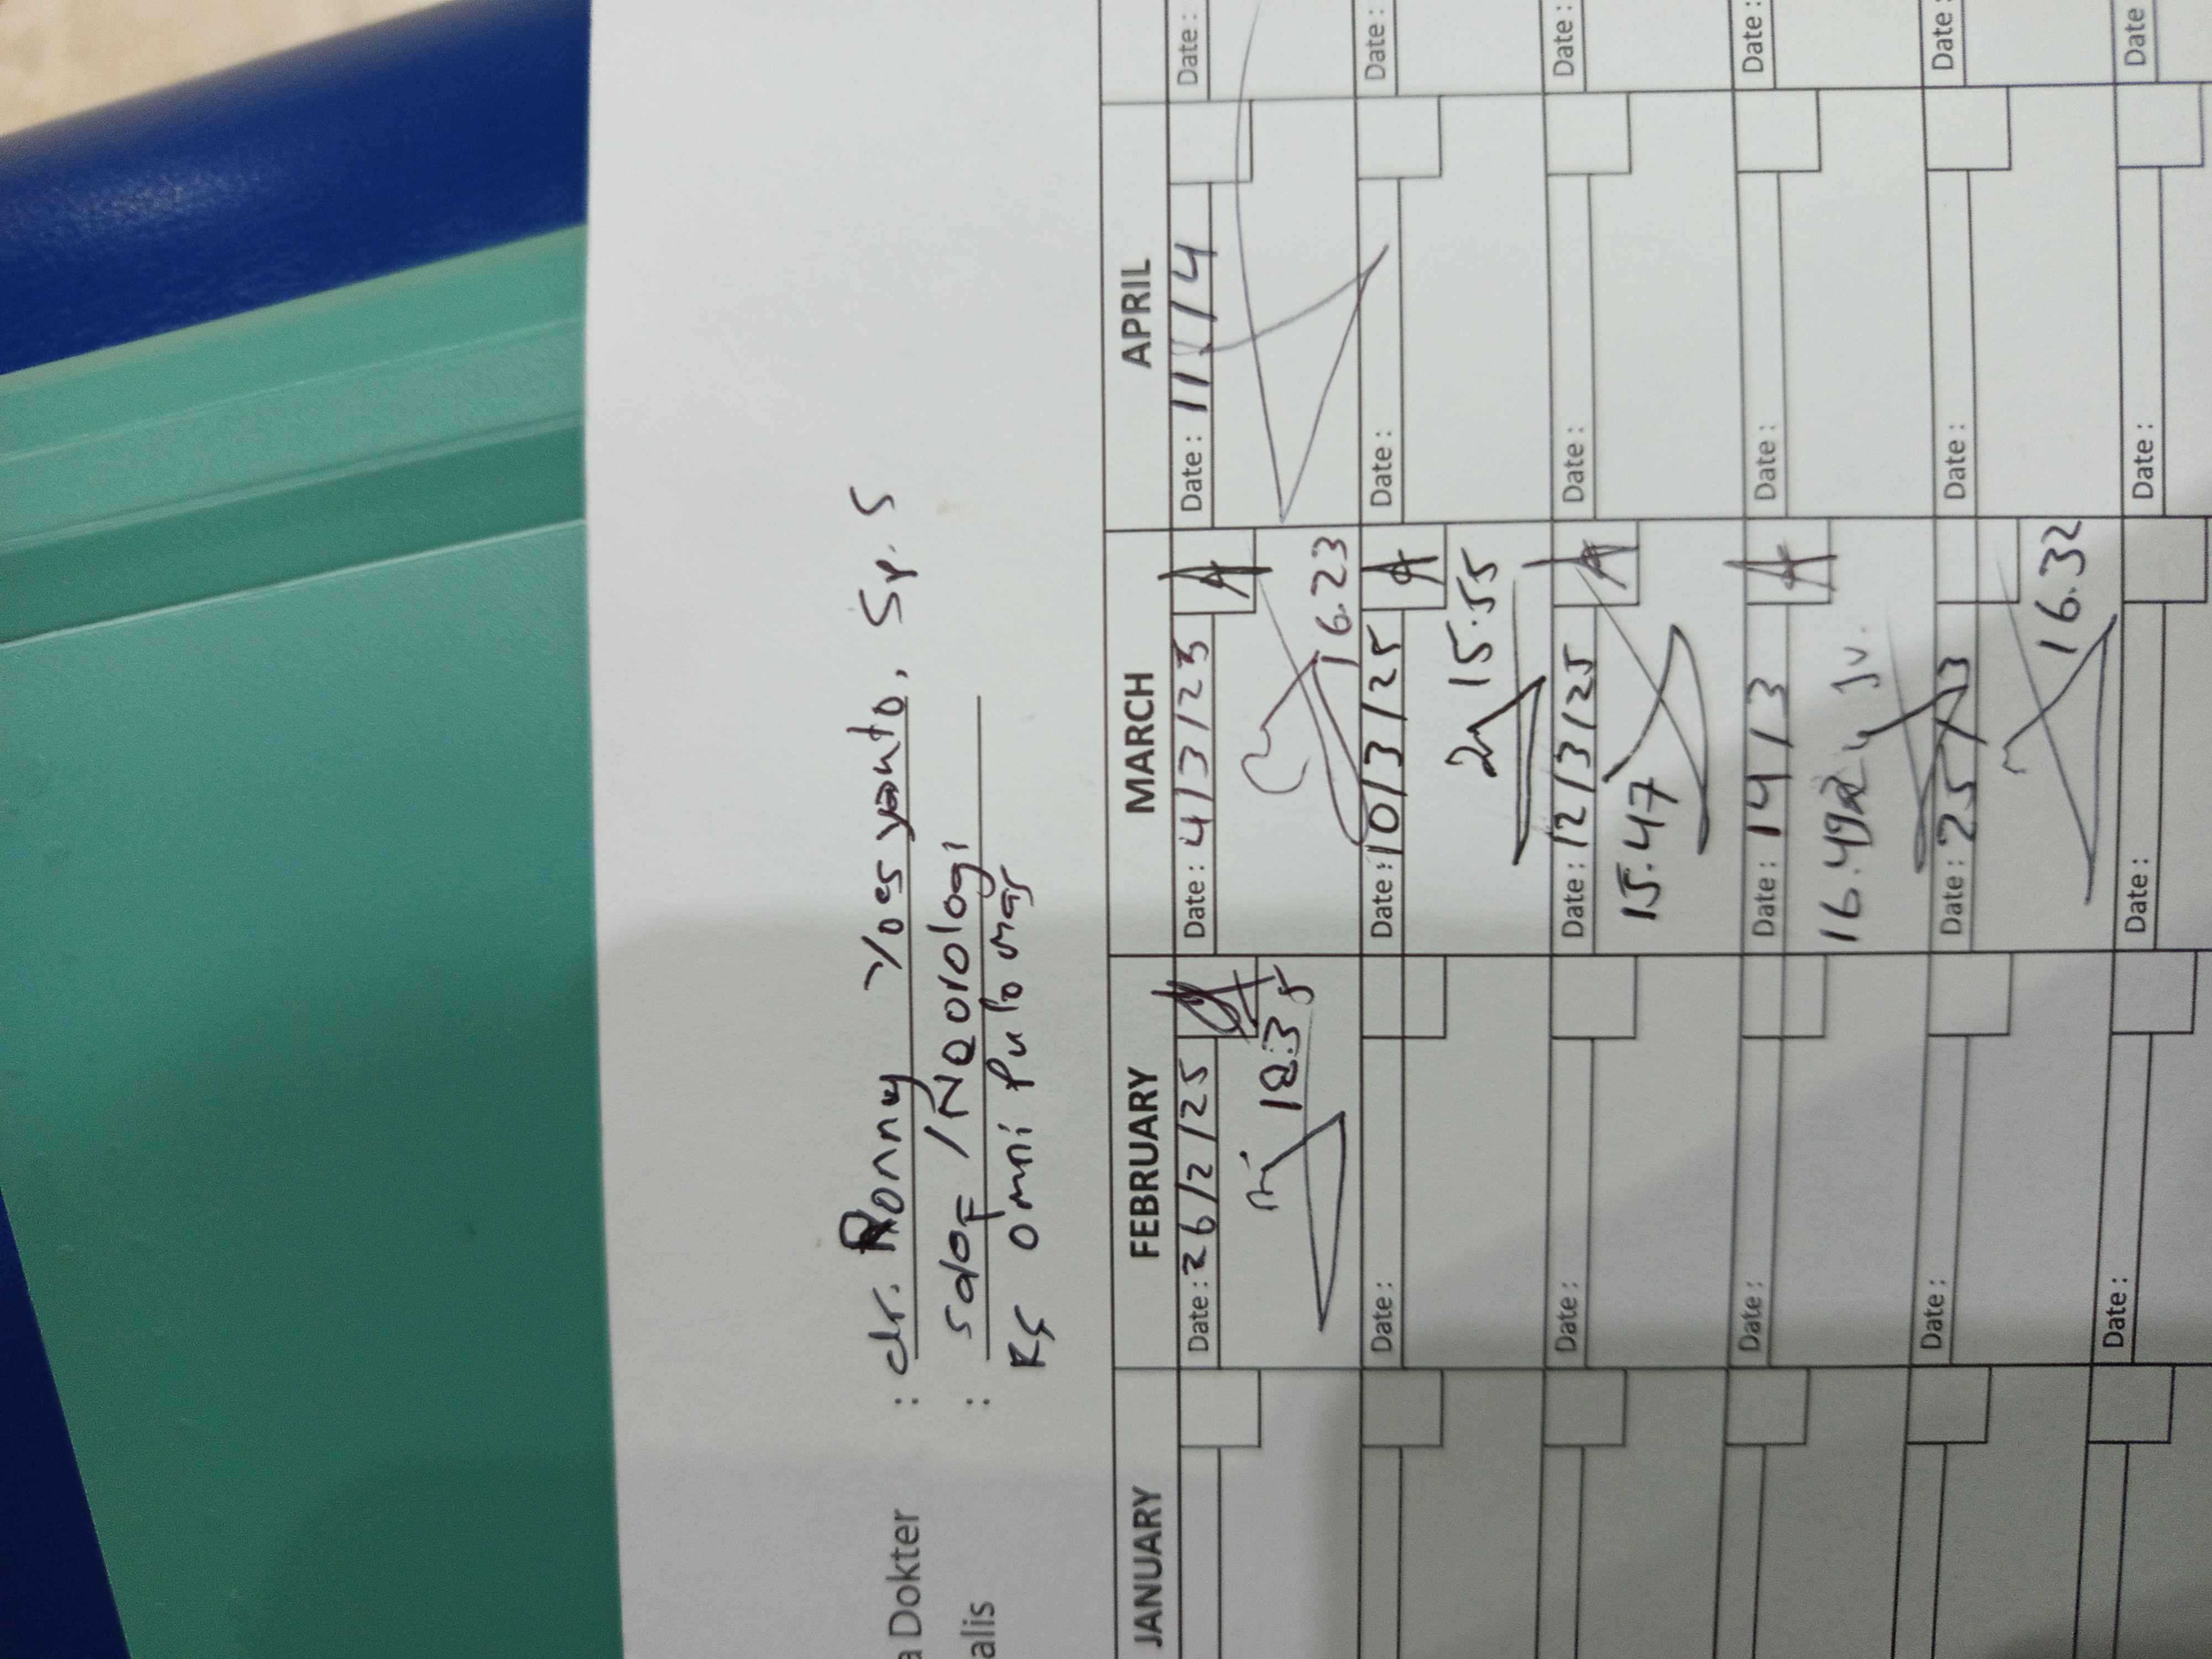 a Dokter : dr. Ronny Yoesyanto, Sp. S
alis : Saraf / Neorologi
RS Omni Pulo mas
JANUARY FEBRUARY MARCH APRIL
Date : 26/2/25 Date : 4/3/25 Date : 11/4 Date :
18.35 16.23
Date : Date : 10/3/25 Date : Date :
15.55
Date : Date : 12/3/25 Date : Date :
15.47
Date : Date : 14/3 Date : Date :
16.49
Date : Date : 25/3 Date : Date :
16.32
Date : Date : Date : Date